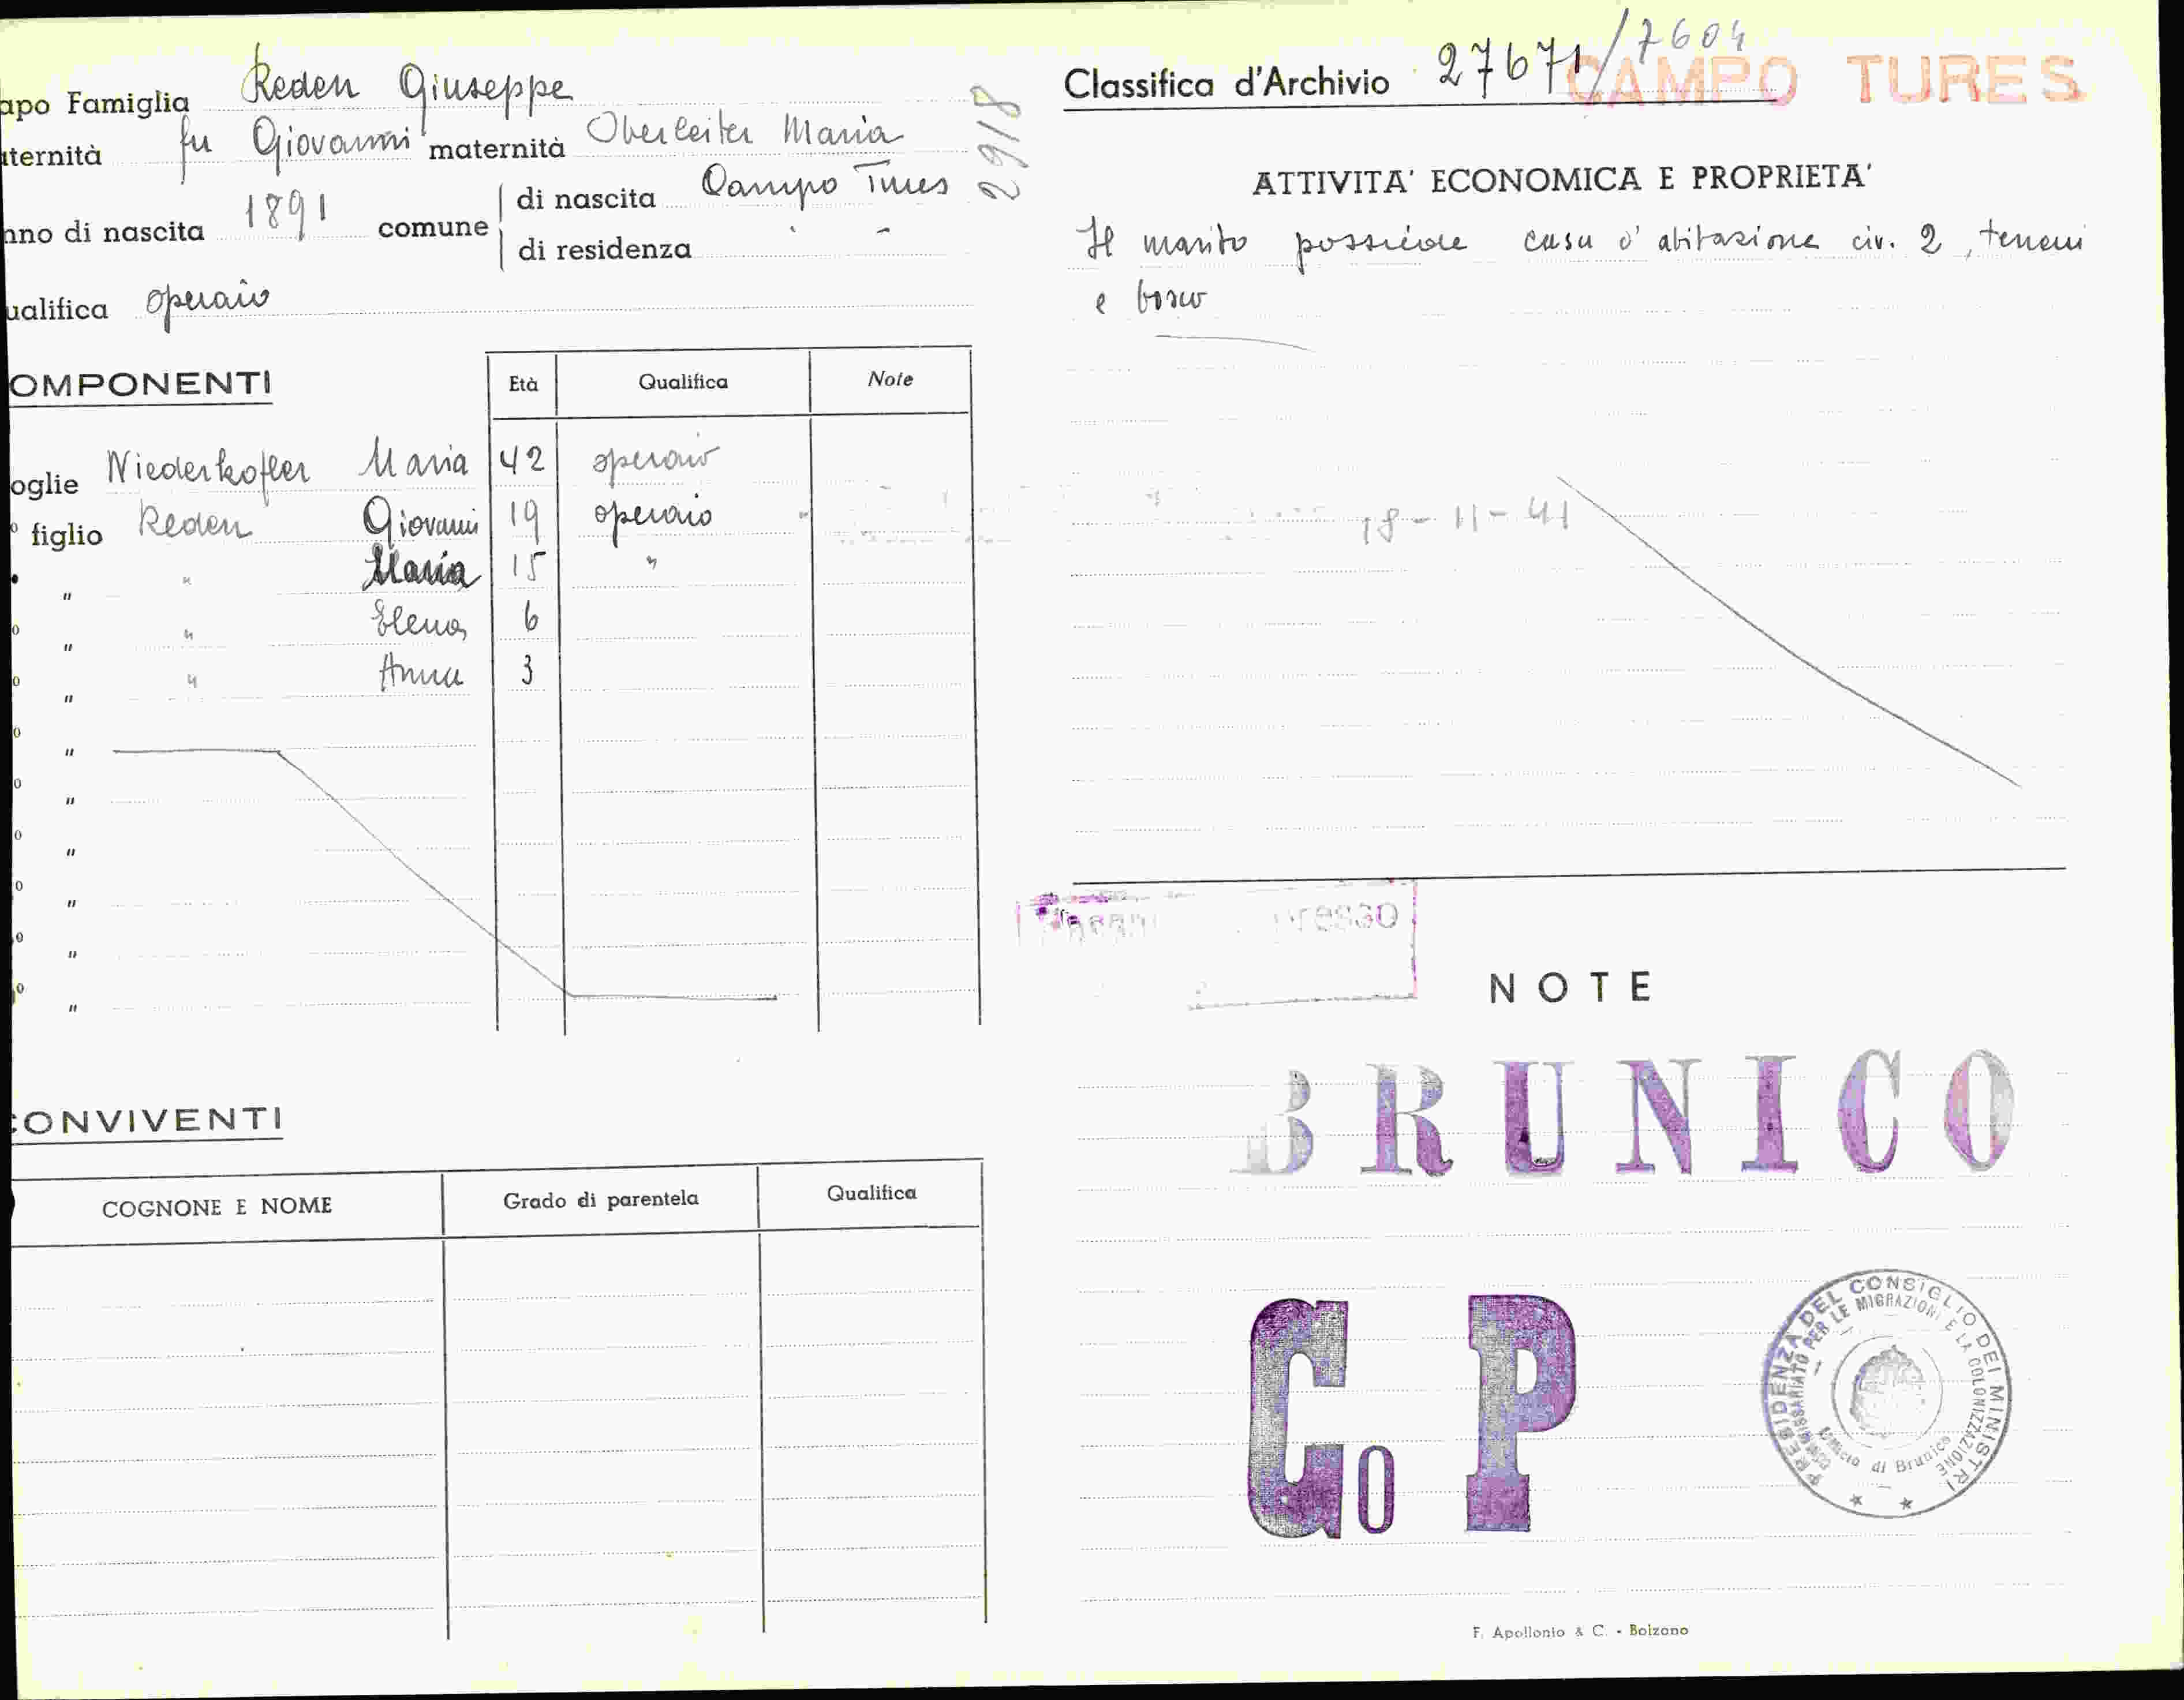 apo Famiglia Reden Giuseppe
aternità fu Giovanni maternità Oberleiter Maria
nno di nascita 1891 comune di nascita Campo Tures
di residenza " "
ualifica operaio
2918
OMPONENTI Età Qualifica Note
oglie Niederkofler Maria 42 operaio
° figlio Reden Giovanni 19 operaio
" " Maria 15 "
° " " Elena 6
° " " Anna 3
° "
° "
° "
° "
° "
° "
CONVIVENTI
COGNONE E NOME Grado di parentela Qualifica
Classifica d'Archivio 27671/7604
CAMPO TURES
ATTIVITA' ECONOMICA E PROPRIETA'
Il marito possiede casa d'abitazione civ. 2, terreni
e bosco
18-11-41
NOTE
BRUNICO
Go P
PRESIDENZA DEL CONSIGLIO DEI MINISTRI
COMMISSARIATO PER LE MIGRAZIONI E LA COLONIZZAZIONE
Ufficio di Brunico
F. Apollonio & C. - Bolzano